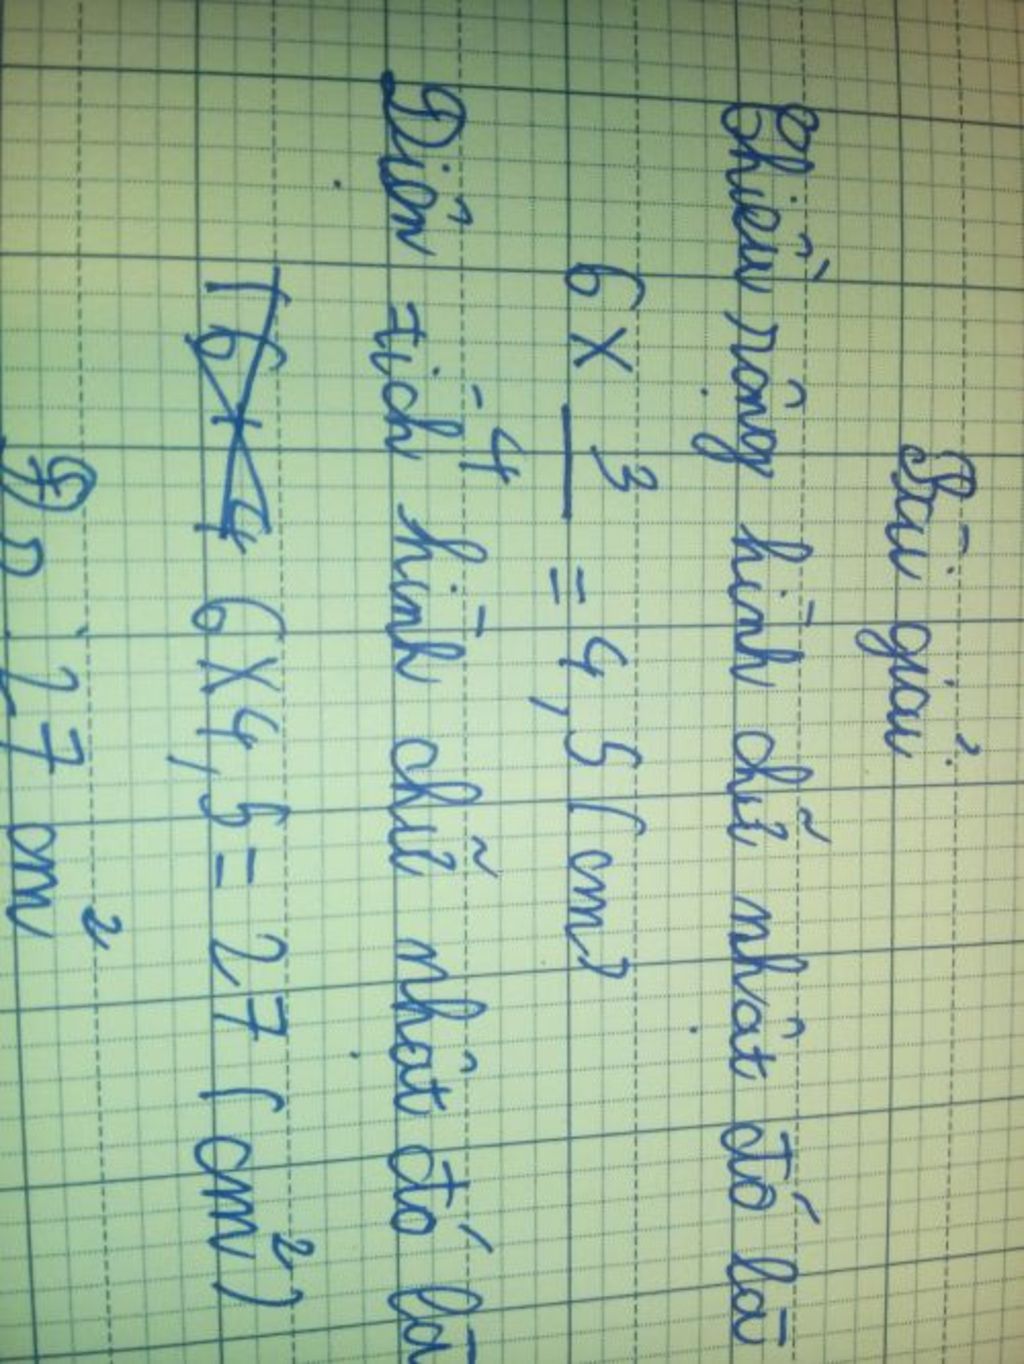 Bài giải
Chiều rộng hình chữ nhật đó là
6 x 3/4 = 4,5 (cm)
Diện tích hình chữ nhật đó là
6 x 4,5 = 27 (cm²)
27 cm²